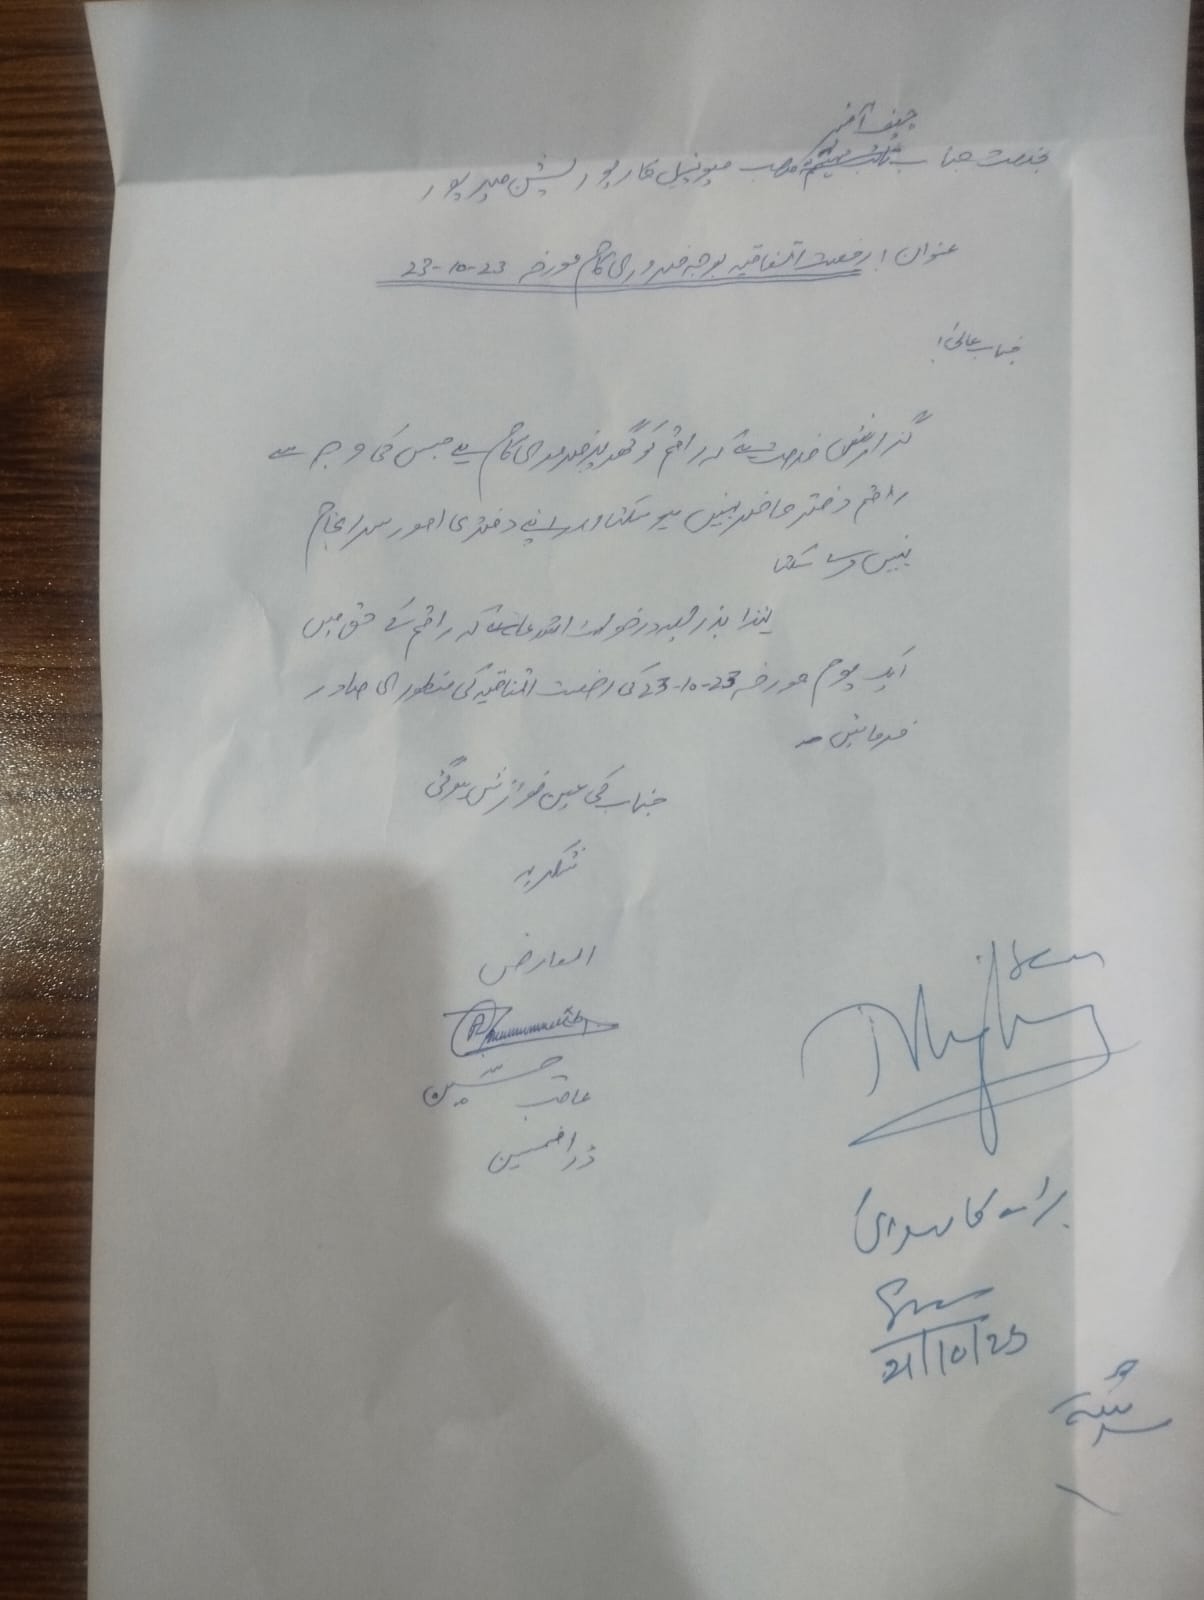 چیف آفیسر
بخدمت جناب صاحب میونسپل کارپوریشن میرپور
عنوان: رخصت اتفاقیہ بوجہ ضروری کام مورخہ 23-10-23
جناب عالی!
گزارش خدمت ہے کہ راقم کو گھر پر ضروری کام ہے جس کی وجہ سے
راقم دفتر حاضر نہیں ہو سکتا اور اپنے دفتری امور سرانجام
نہیں دے سکتا
لہذا بذریعہ درخواست استدعا ہے کہ راقم کے حق میں
ایک یوم مورخہ 23-10-23 کی رخصت اتفاقیہ کی منظوری صادر
فرمائیں۔
جناب کی عین نوازش ہوگی
شکریہ
العارض
عاقب حسین
ڈرافسمین
برائے کارروائی
21/10/23